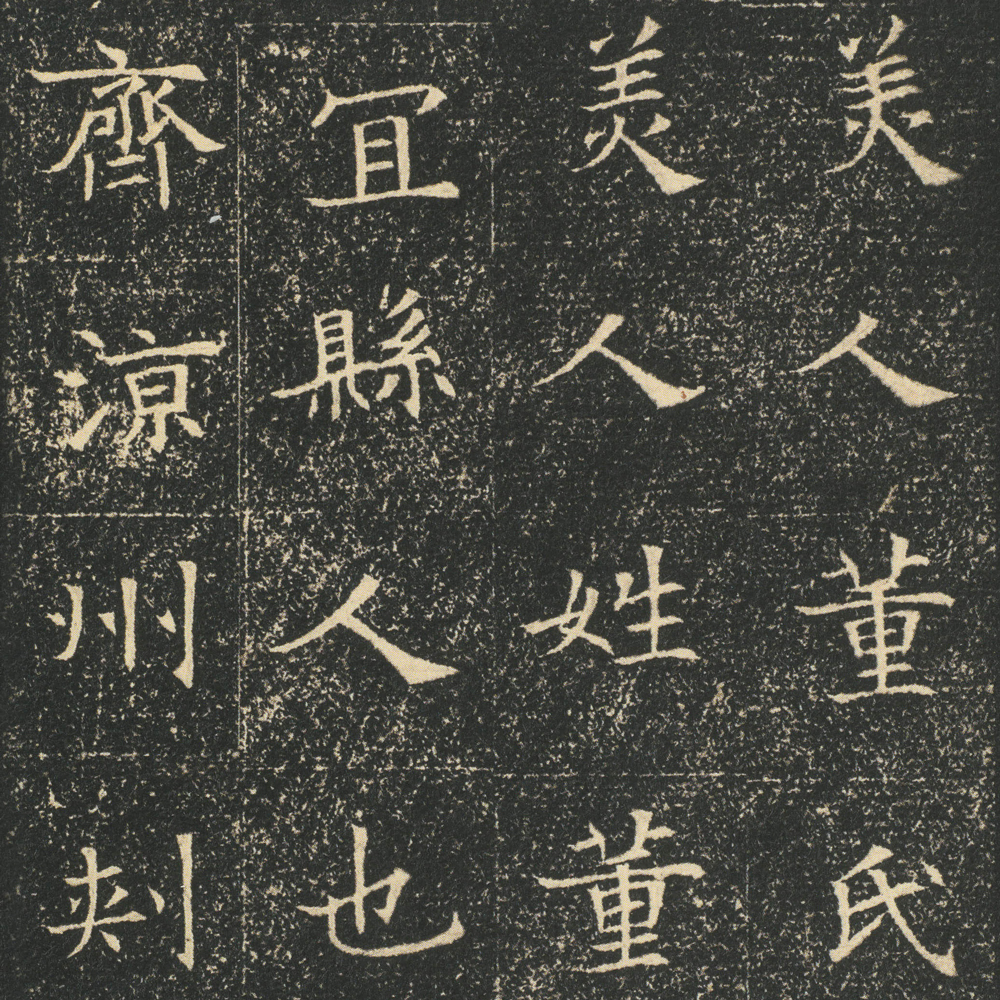 美人董氏
美人姓董
冝縣人也
齊涼州刾